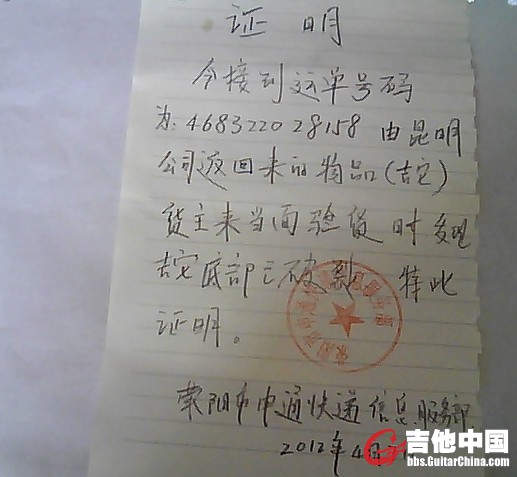 证 明
今接到运单号码
为:468322028158 由昆明
公司返回来的物品(吉它)
货主来当面验货时发现
吉它底部已破裂 特此
证明。
荥阳市中通快递信息服务部
2012年4月
吉他中国
bbs.GuitarChina.com